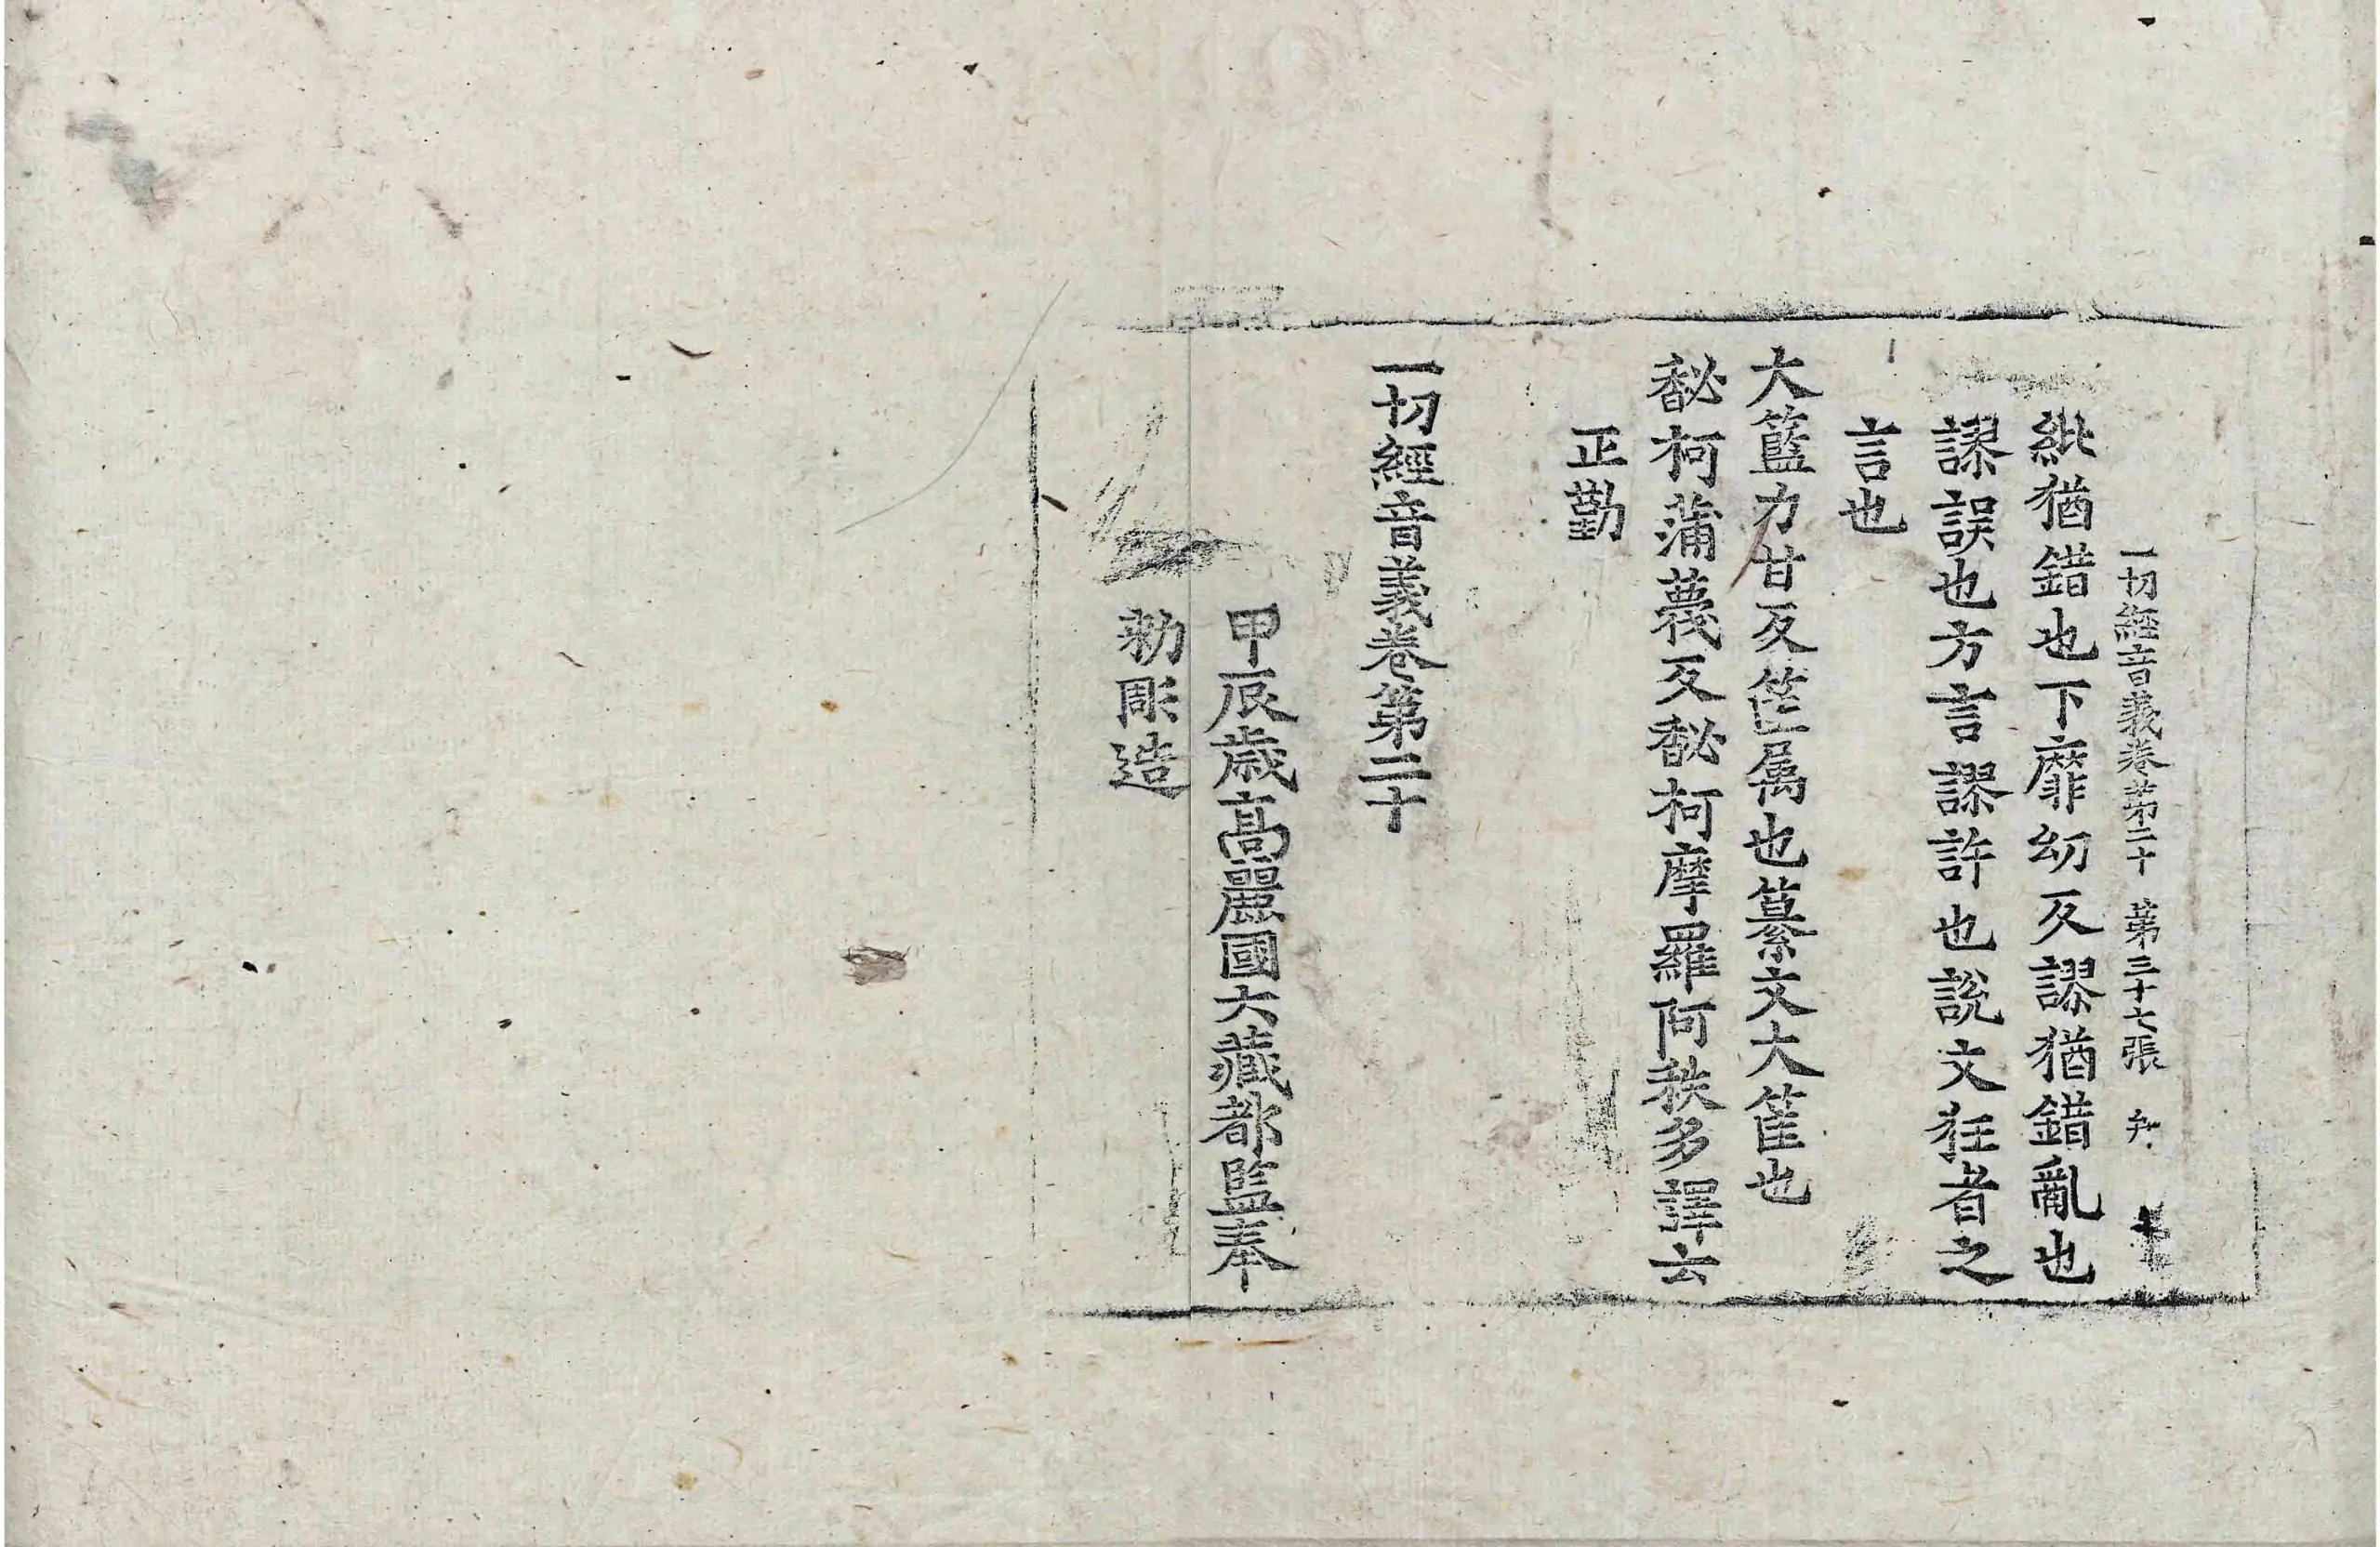 一切經音義卷第二十 第三十七張
紕猶錯也下靡幼反謬猶錯亂也
謬誤也方言謬詐也說文狂者之
言也
大籃力甘反筐属也纂文大筐也
馝柯蒲蔑反馝柯摩羅阿秩多譯云
正勤
一切經音義卷第二十
甲辰歲高麗國大藏都監奉
勑彫造